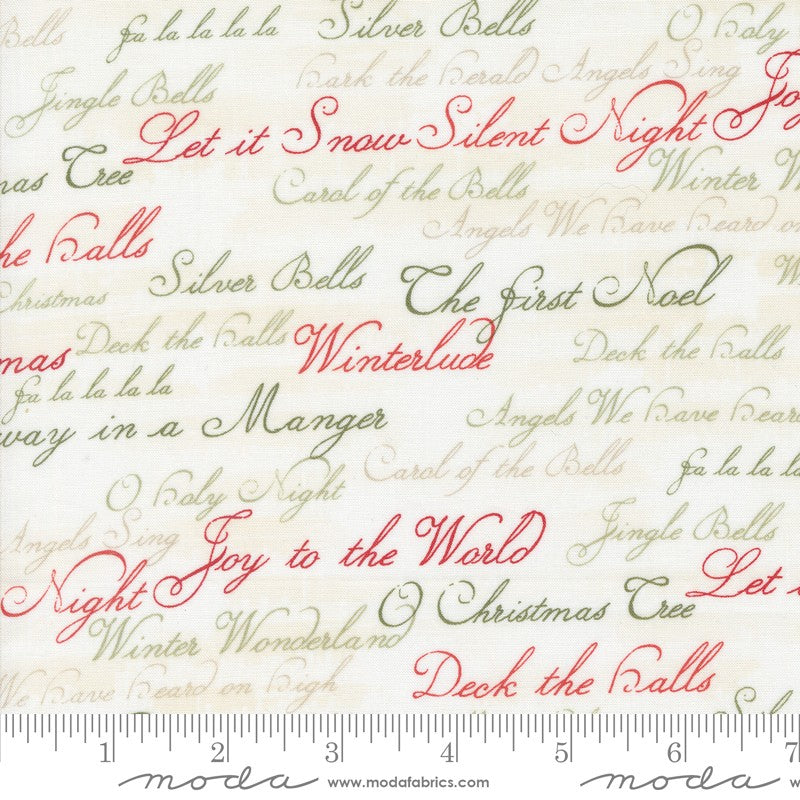 Bells fa la la la la Silver Bells O holy
Jingle Bells hark the herald Angels Sing Joy
Let it Snow Silent Night
mas Tree Carol of the Bells Winter W
Angels We have heard on
he halls
Silver Bells The first Noel
Christmas
mas Deck the halls Winterlude Deck the halls
fa la la la la
way in a Manger Angels We have heard
Carol of the Bells fa la la la
O holy Night
Angels Sing Joy to the World Jingle Bells
Night O Christmas Tree Let i
Winter Wonderland
We have heard on high Deck the halls
Sil
1 2 3 4 5 6 7
moda www.modafabrics.com moda w